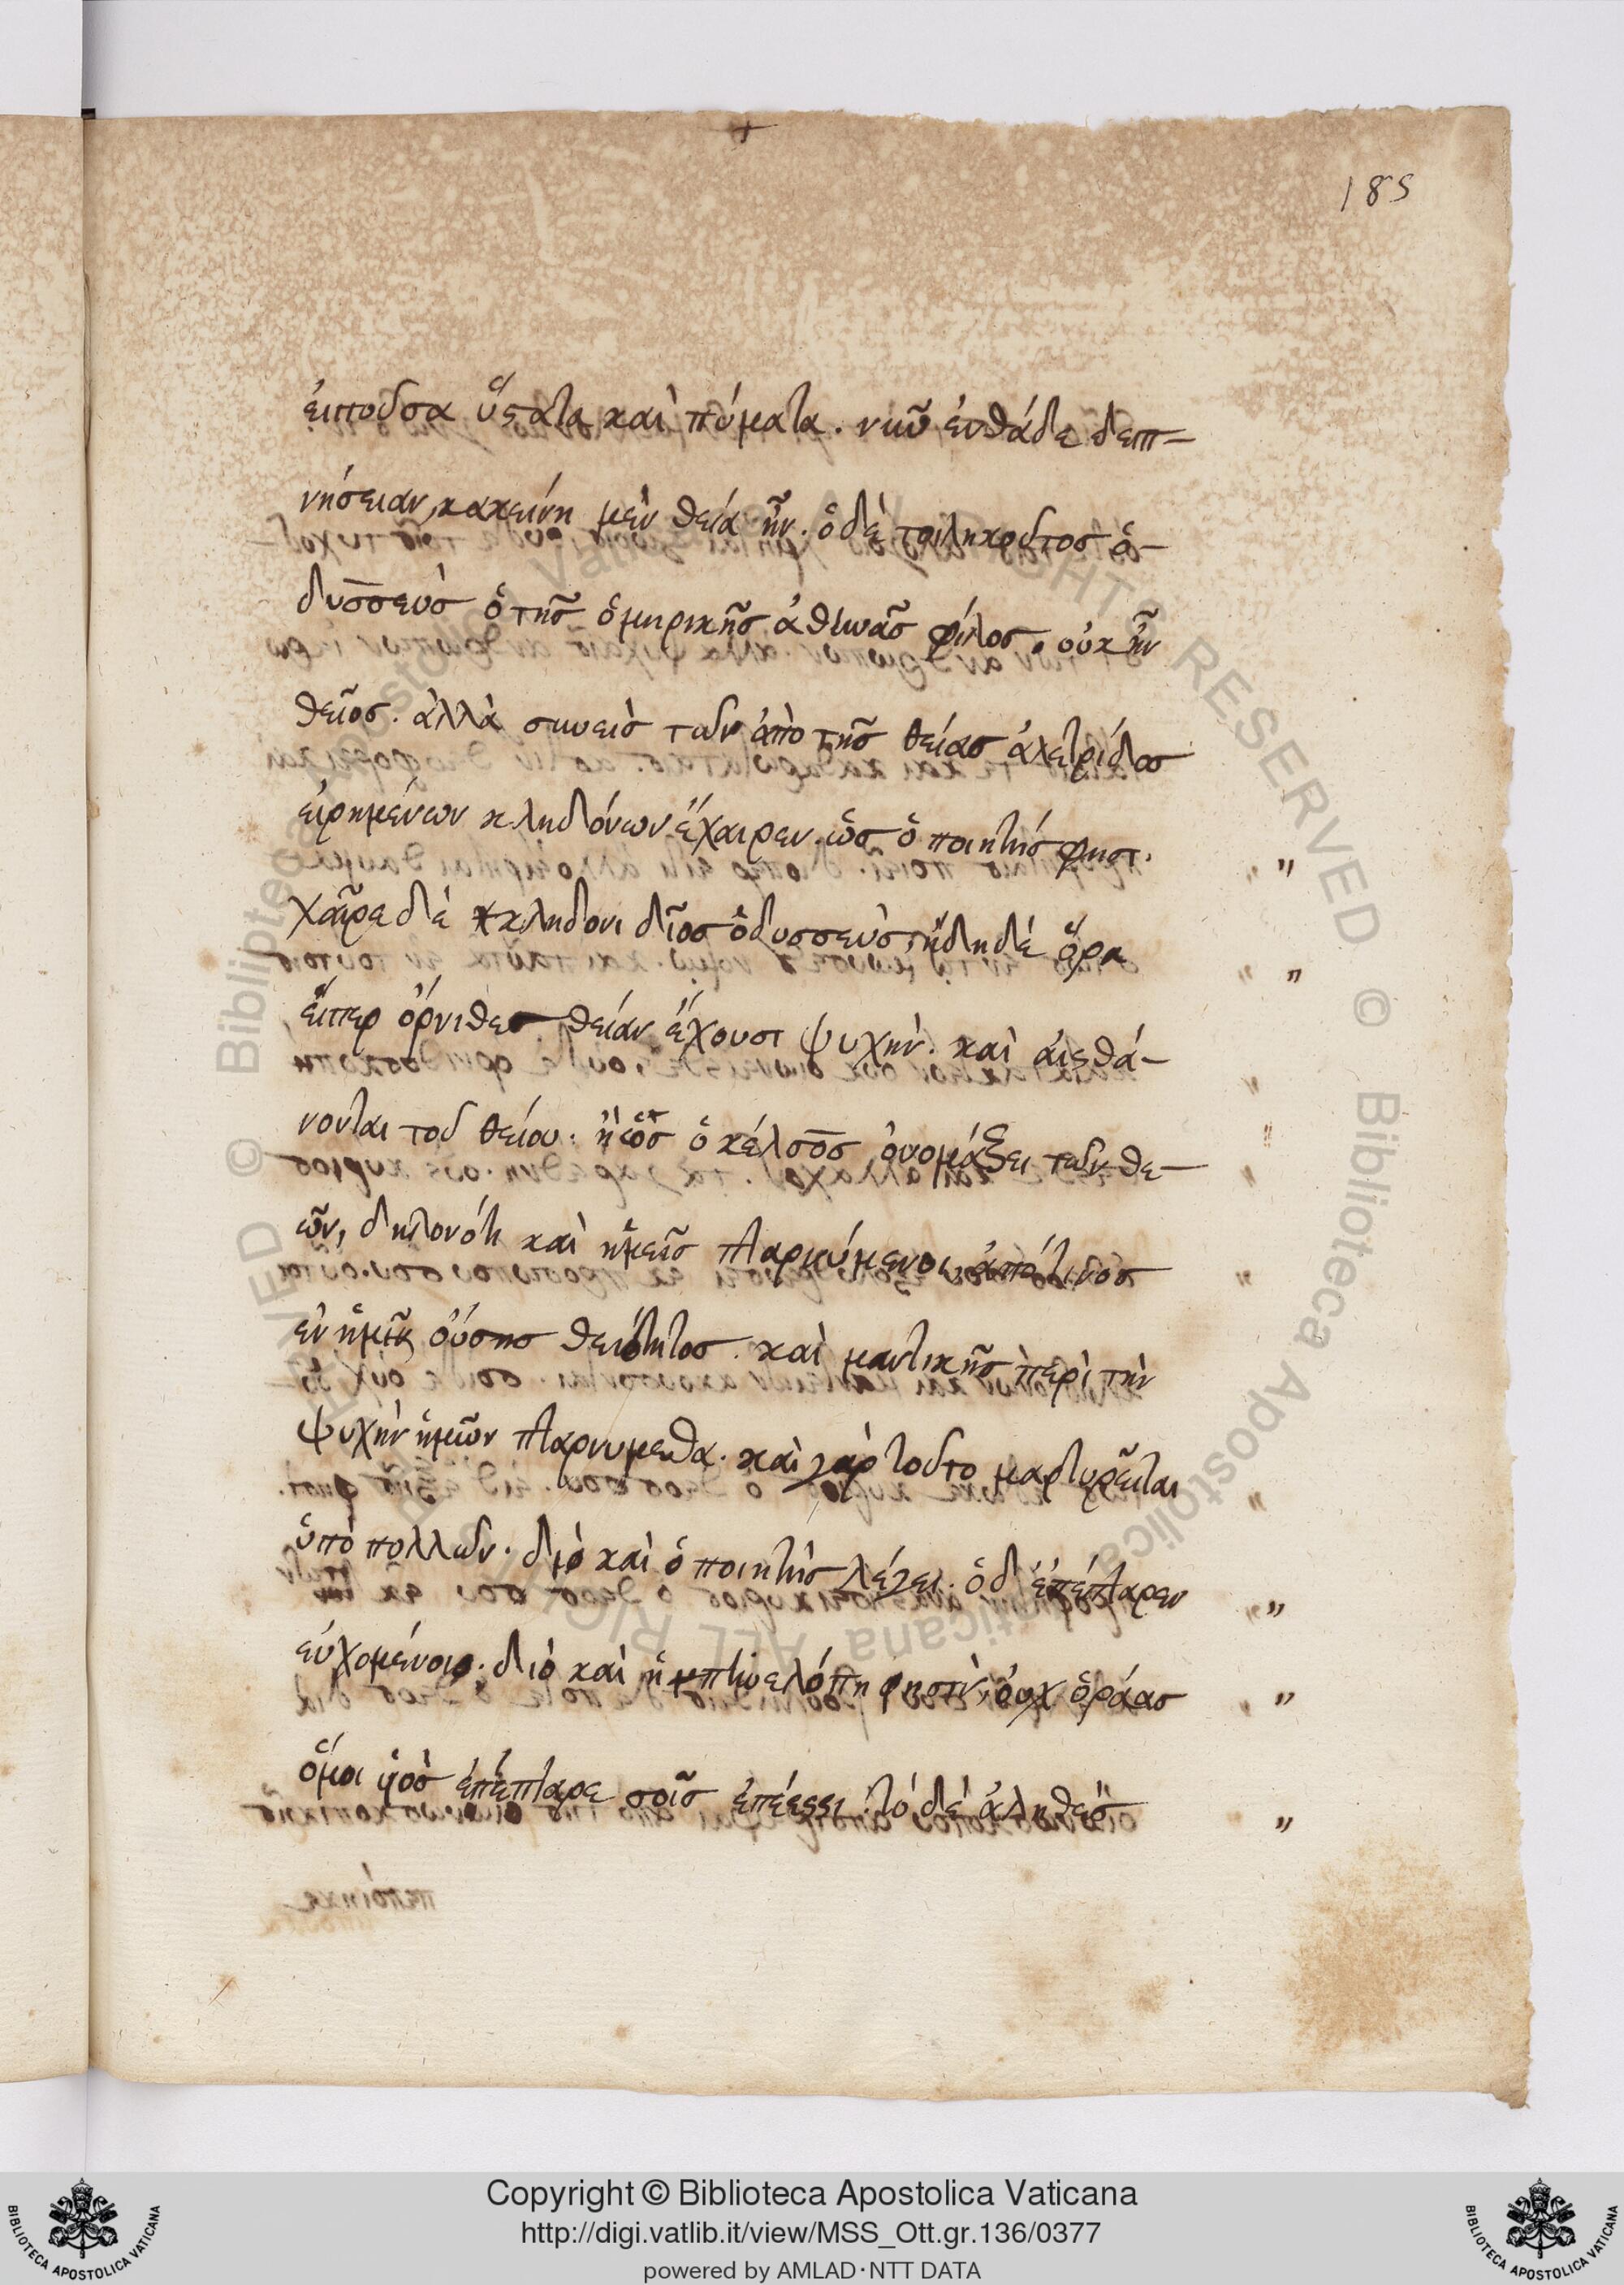 185
εἰποῦσα ὕστατα καὶ πύματα. νῦν ἐνθάδε δειπ-
νήσειαν, κακείνη μὲν θεία ἦν. ὁ δὲ τοιληκοῦτος ὀ-
δυσσεὺς ὁ τῆς ὁμηρικῆς ἀθηνᾶς φίλος. οὐκ ἦν
θεῖος. ἀλλὰ συνεὶς τῶν ἀπὸ τῆς θείας ἀλετρίδος
εἰρημένων κληδόνων ἔχαιρεν. ὡς ὁ ποιητής φησι.
χαῖρε δὲ κληδόνι δῖος ὀδυσσεύς, ἤδη δὲ ὅρα
εἴπερ ὄρνιθες θείαν ἔχουσι ψυχὴν. καὶ αἰσθά-
νονται τοῦ θείου. ἢ ὡς ὁ κέλσος ὀνομάζει τῶν θε-
ῶν, δηλονότι καὶ ἡμεῖς πταρνύμενοι, ἀπό τινος
ἐν ἡμῖν οὔσης θειότητος. καὶ μαντικῆς περὶ τὴν
ψυχὴν ἡμῶν πταρνυμεθα. καὶ γὰρ τοῦτο μαρτυρεῖται
ὑπὸ πολλῶν. διὸ καὶ ὁ ποιητὴς λέγει. ὁ δ' ἐπέπταρεν
εὐχομένοιο. διὸ καὶ ἡ πηνελόπη φησιν, οὐχ ὁράας
ὅμοι υἱὸς ἐπέπταρε σοῖς ἐπέεσσι. τὸ δὲ ἀληθὲς
Copyright © Biblioteca Apostolica Vaticana
http://digi.vatlib.it/view/MSS_Ott.gr.136/0377
powered by AMLAD·NTT DATA
BIBLIOTECA APOSTOLICA VATICANA
BIBLIOTECA APOSTOLICA VATICANA